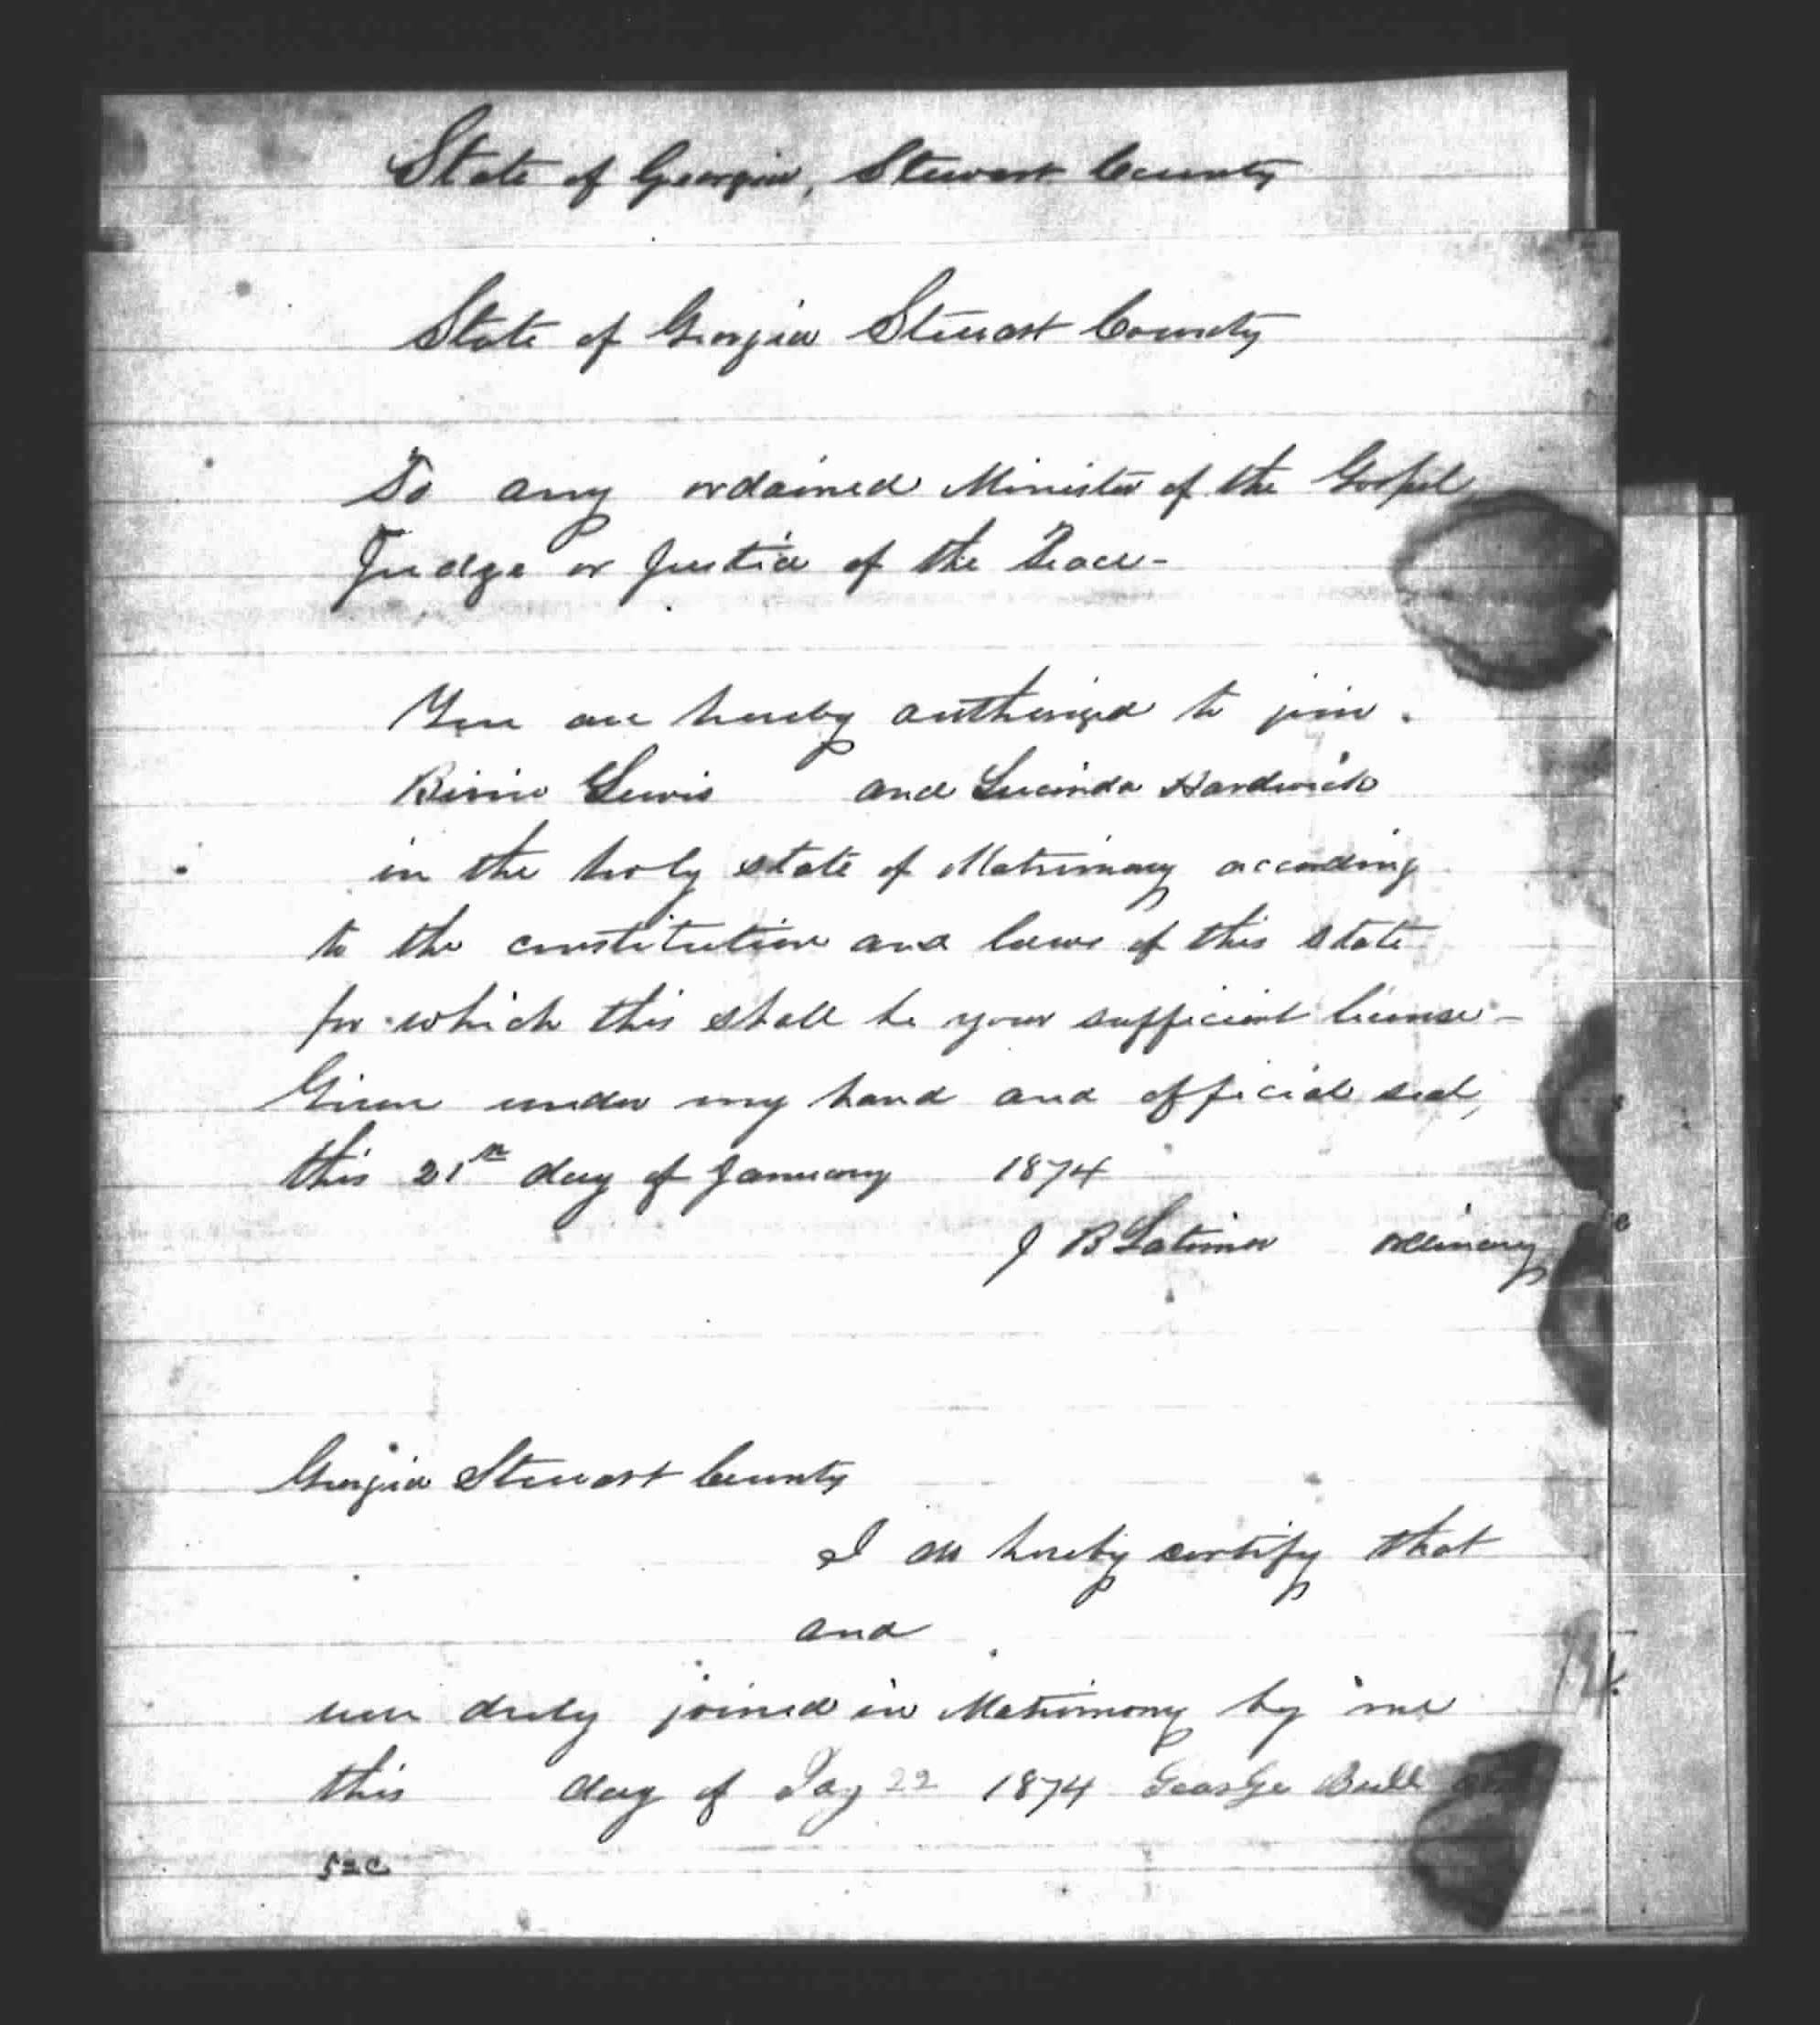 State of Georgia, Stewart County
State of Georgia Stewart County
To any ordained Minister of the Gospel,
Judge or Justice of the Peace-
You are hereby authorized to join
Lewis and Lucinda Hardwick
in the holy state of Matrimony according
to the constitution and laws of this state
for which this shall be your sufficient license-
Given under my hand and official seal,
this 21st day of January 1874
J B Latimer Ordinary
Georgia Stewart County
I do hereby certify that
and
were duly joined in Matrimony by me
this day of 22 1874 George Bull